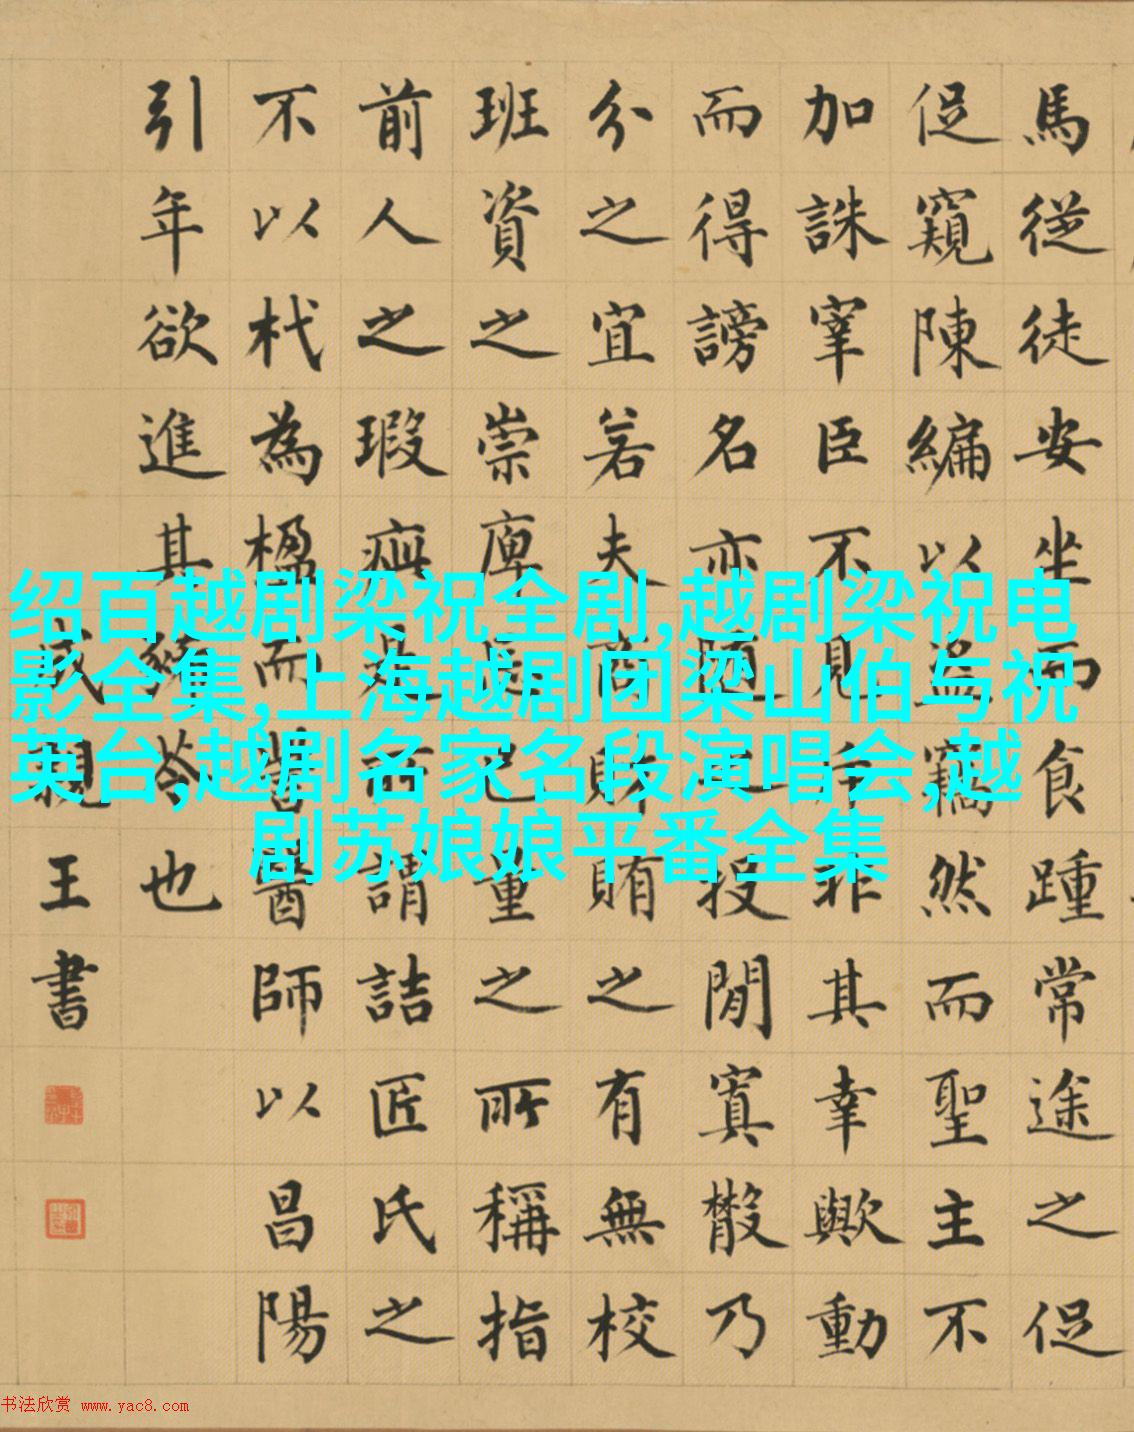 馬從徒安坐而食踵常途之促
促窺陳編以盜竊然而聖主不
加誅宰臣不見斥非其幸歟動
而得謗名亦隨之投閒寘散乃
分之宜若夫商財賄之有無校
班資之崇庳忘己量之所稱指
前人之瑕疵是所謂詰匠氏之
不以杙為楹而訾醫師以昌陽
引年欲進其豨苓也
成親王書
绍百越剧梁祝全剧,越剧梁祝电
影全集,上海越剧团梁山伯与祝
英台,越剧名家名段演唱会,越
剧苏娘娘平番全集
书法欣赏 www.yac8.com